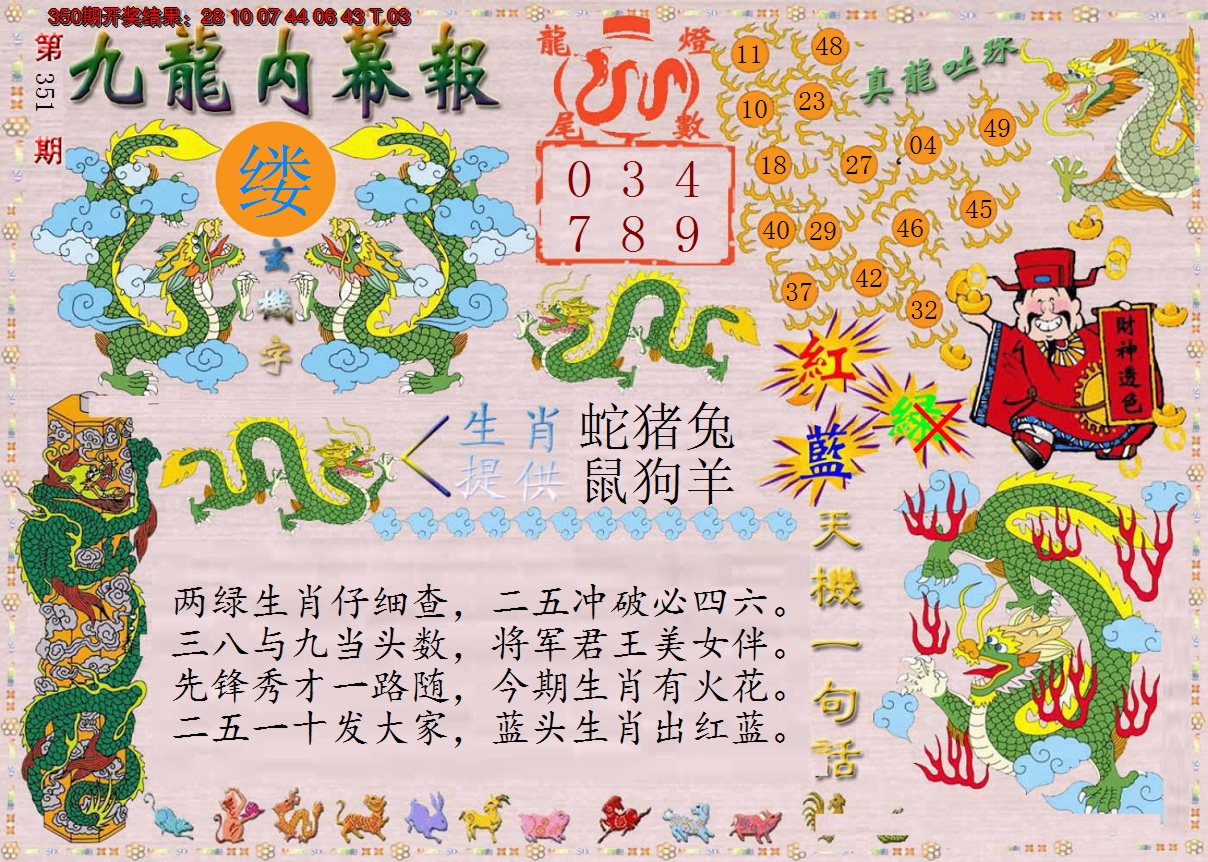 350期开奖结果：28 10 07 44 06 43 T 03
第
351
期
九龍内幕報
缕
玄
機
字
龍 燈
尾 數
0 3 4
7 8 9
真龍吐珠
11
48
10
23
18
27
04
49
40
29
46
45
37
42
32
紅
綠
藍
財神透色
生肖
提供
蛇猪兔
鼠狗羊
天機一句話
两绿生肖仔细查，二五冲破必四六。
三八与九当头数，将军君王美女伴。
先锋秀才一路随，今期生肖有火花。
二五一十发大家，蓝头生肖出红蓝。